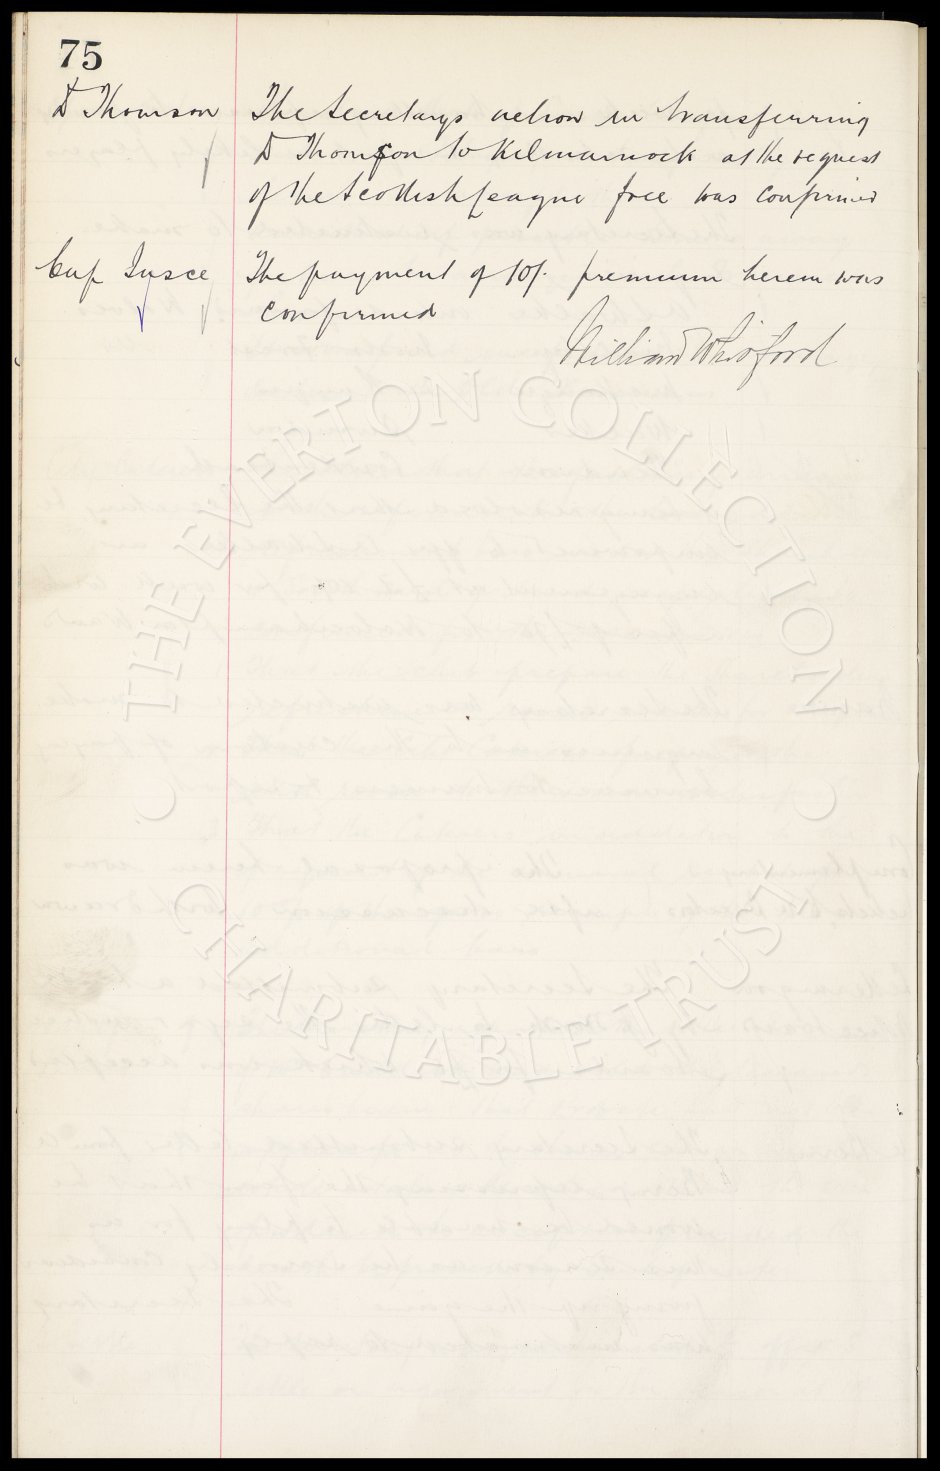 75
D Thomson The Secretarys action in transferring
D Thomson to Kilmarnock at the request
of the Scottish League free was confirmed
Cup Insce The payment of 10/- premium herein was
confirmed
William Whitford
THE EVERTON COLLECTION
CHARITABLE TRUST